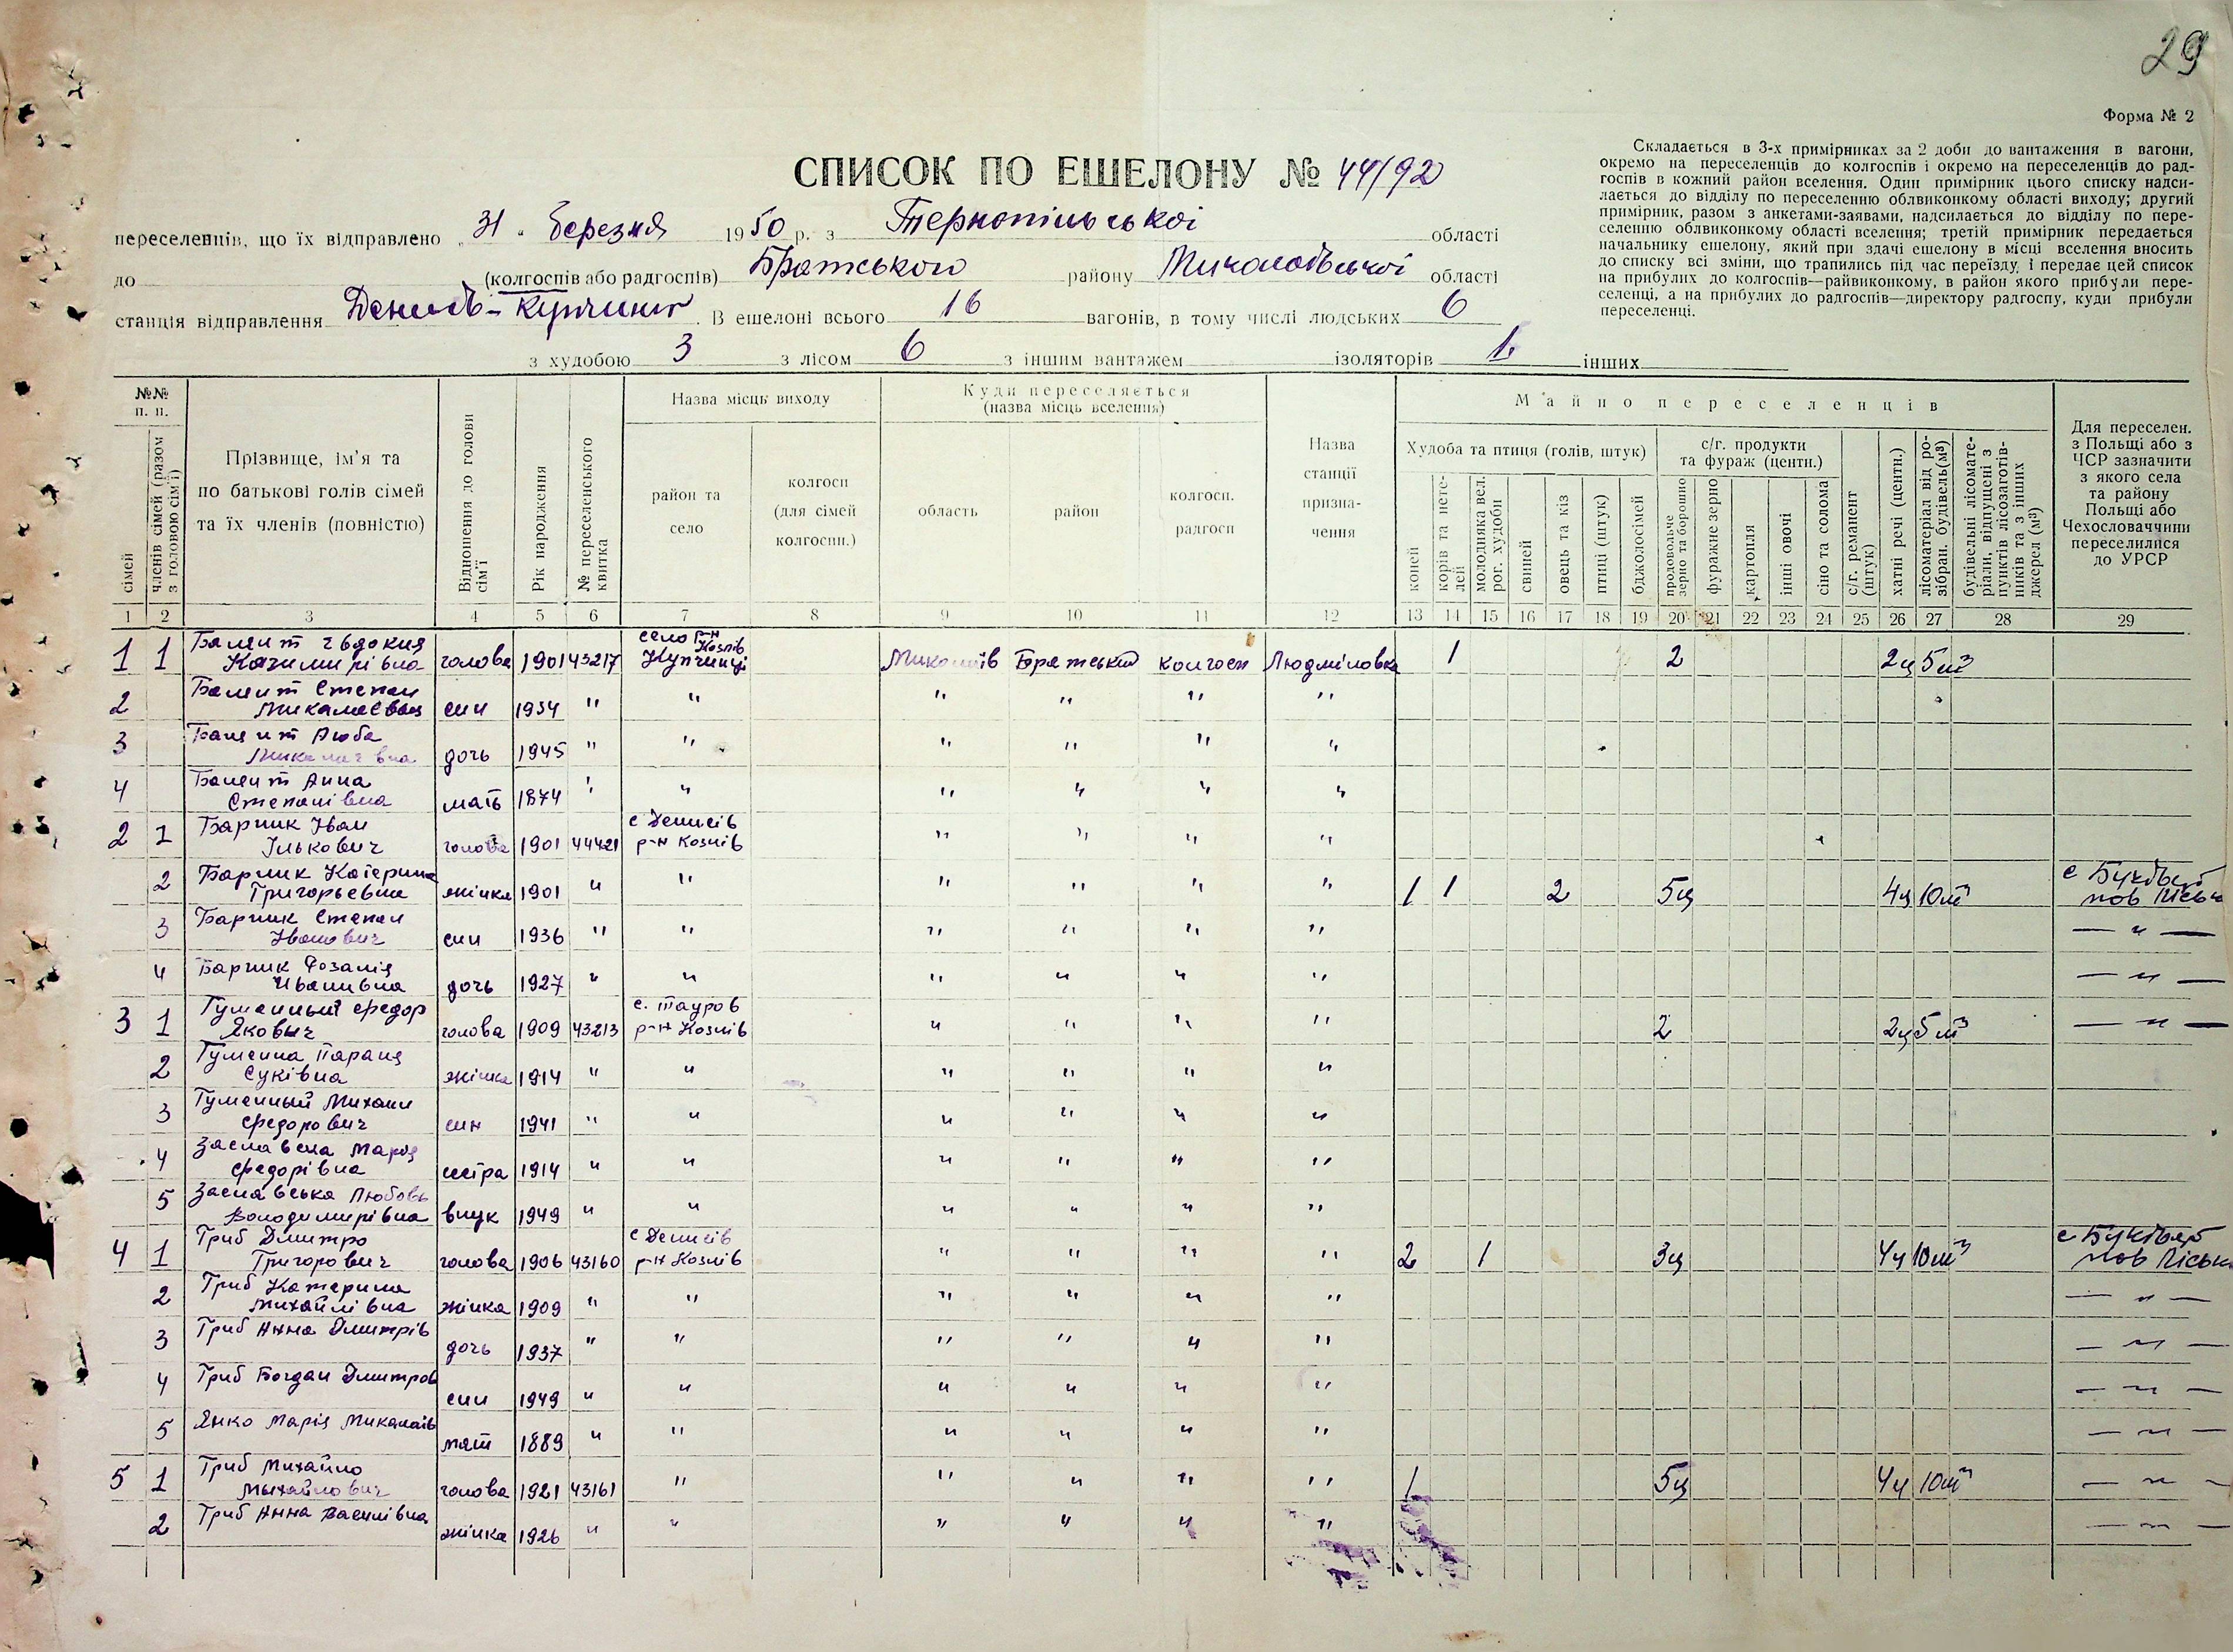 29
Форма № 2
Складається в 3-х примірниках за 2 доби до вантаження в вагони,
окремо на переселенців до колгоспів і окремо на переселенців до рад-
госпів в кожний район вселення. Один примірник цього списку надси-
лається до відділу по переселенню облвиконкому області виходу; другий
примірник, разом з анкетами-заявами, надсилається до відділу по пере-
селенню облвиконкому області вселення; третій примірник передається
начальнику ешелону, який при здачі ешелону в місці вселення вносить
до списку всі зміни, що трапились під час переїзду, і передає цей список
на прибулих до колгоспів—райвиконкому, в район якого прибули пере-
селенці, а на прибулих до радгоспів—директору радгоспу, куди прибули
переселенці.
СПИСОК ПО ЕШЕЛОНУ № 44/92
переселенців, що їх відправлено „31" березня 1950 р. з Тернопільської області
до (колгоспів або радгоспів) Братського району Миколаївської області
станція відправлення Денисів-Купчинці В ешелоні всього 16 вагонів, в тому числі людських 6
з худобою 3 з лісом 6 з іншим вантажем ізоляторів 1 інших
№№ п. п.
сімей
членів сімей (разом з головою сім'ї)
Прізвище, ім'я та по батькові голів сімей та їх членів (повністю)
Відношення до голови сім'ї
Рік народження
№ переселенського квитка
Назва місць виходу
район та село
колгосп (для сімей колгоспн.)
Куди переселяється (назва місць вселення)
область
район
колгосп. радгосп
Назва станції призна- чення
Майно переселенців
Худоба та птиця (голів, штук)
коней
корів та нете- лей
молодняка вел. рог. худоби
свиней
овець та кіз
птиці (штук)
бджолосімей
с/г. продукти та фураж (центн.)
продовольче зерно та борошно
фуражне зерно
картопля
інші овочі
сіно та солома
с/г. реманент (штук)
хатні речі (центн.)
лісоматеріал від ро- зібран. будівель (м³)
будівельні лісомате- ріали, відпущені з пунктів лісозаготів- ників та з інших джерел (м³)
Для переселен. з Польщі або з ЧСР зазначити з якого села та району Польщі або Чехословаччини переселилися до УРСР
1 2 3 4 5 6 7 8 9 10 11 12 13 14 15 16 17 18 19 20 21 22 23 24 25 26 27 28 29
1 1 Балит Євдокия Казимирівна голова 1901 43217 село Купчинці р-н Козлів Миколаїв Братський колгосп Людмиловка 1 2 2ц 5м³
2 Балит Степан Миколаєвич син 1934 " " " " " "
3 Балит Люба дочь 1945 " " " " " "
4 Балит Анна Степанівна мать 1874 " " " " " "
2 1 Барник Іван Ількович голова 1901 44421 с Денисів р-н Козлів " " " "
2 Барник Катерина Григорьевна жінка 1901 " " " " " " 1 1 2 5ц 4ц 10м³
3 Барник Степан Іванович син 1936 " " " " " " — " —
4 Барник Розалія Иванивна дочь 1927 " " " " " " — " —
3 1 Гуменный Федор Якович голова 1909 43213 с. Тауров р-н Козлів " " " " 2 2ц 5м³ — " —
2 Гуменна Параня жінка 1914 " " " " " "
3 Гуменный Михаил Федорович син 1941 " " " " " "
4 Мария Федорівна сестра 1914 " " " " " "
5 Заславська Любовь Володимирівна внук 1949 " " " " " "
4 1 Гриб Дмитро Григорович голова 1906 43160 с Денисів р-н Козлів " " " " 2 1 3ц 4ц 10м³
2 Гриб Катерина Михайлівна жінка 1909 " " " " " " — " —
3 Гриб Анна Дмитрів дочь 1937 " " " " " " — " —
4 Гриб Богдан Дмитров син 1949 " " " " " " — " —
5 Янко Марія Миколаїв мат 1889 " " " " " " — " —
5 1 Гриб Михайло Михайлович голова 1921 43161 " " " " " 1 5ц 4ц 10м³ — " —
2 Гриб Анна Василівна жінка 1926 " " " " " " — " —